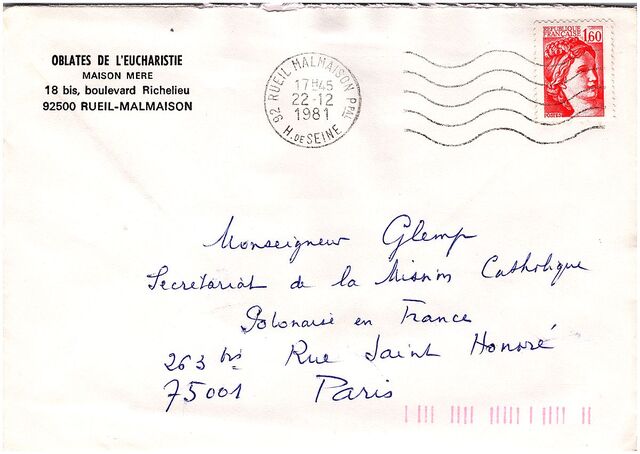 OBLATES DE L'EUCHARISTIE
MAISON MERE
18 bis, boulevard Richelieu
92500 RUEIL-MALMAISON
92 RUEIL MALMAISON PPAL
17H45
22-12
1981
H. DE SEINE
REPUBLIQUE
FRANÇAISE
1,60
POSTES
Monseigneur Glemp
Secrétariat de la Mission Catholique
Polonaise en France
263 bis Rue Saint Honoré
75001 Paris